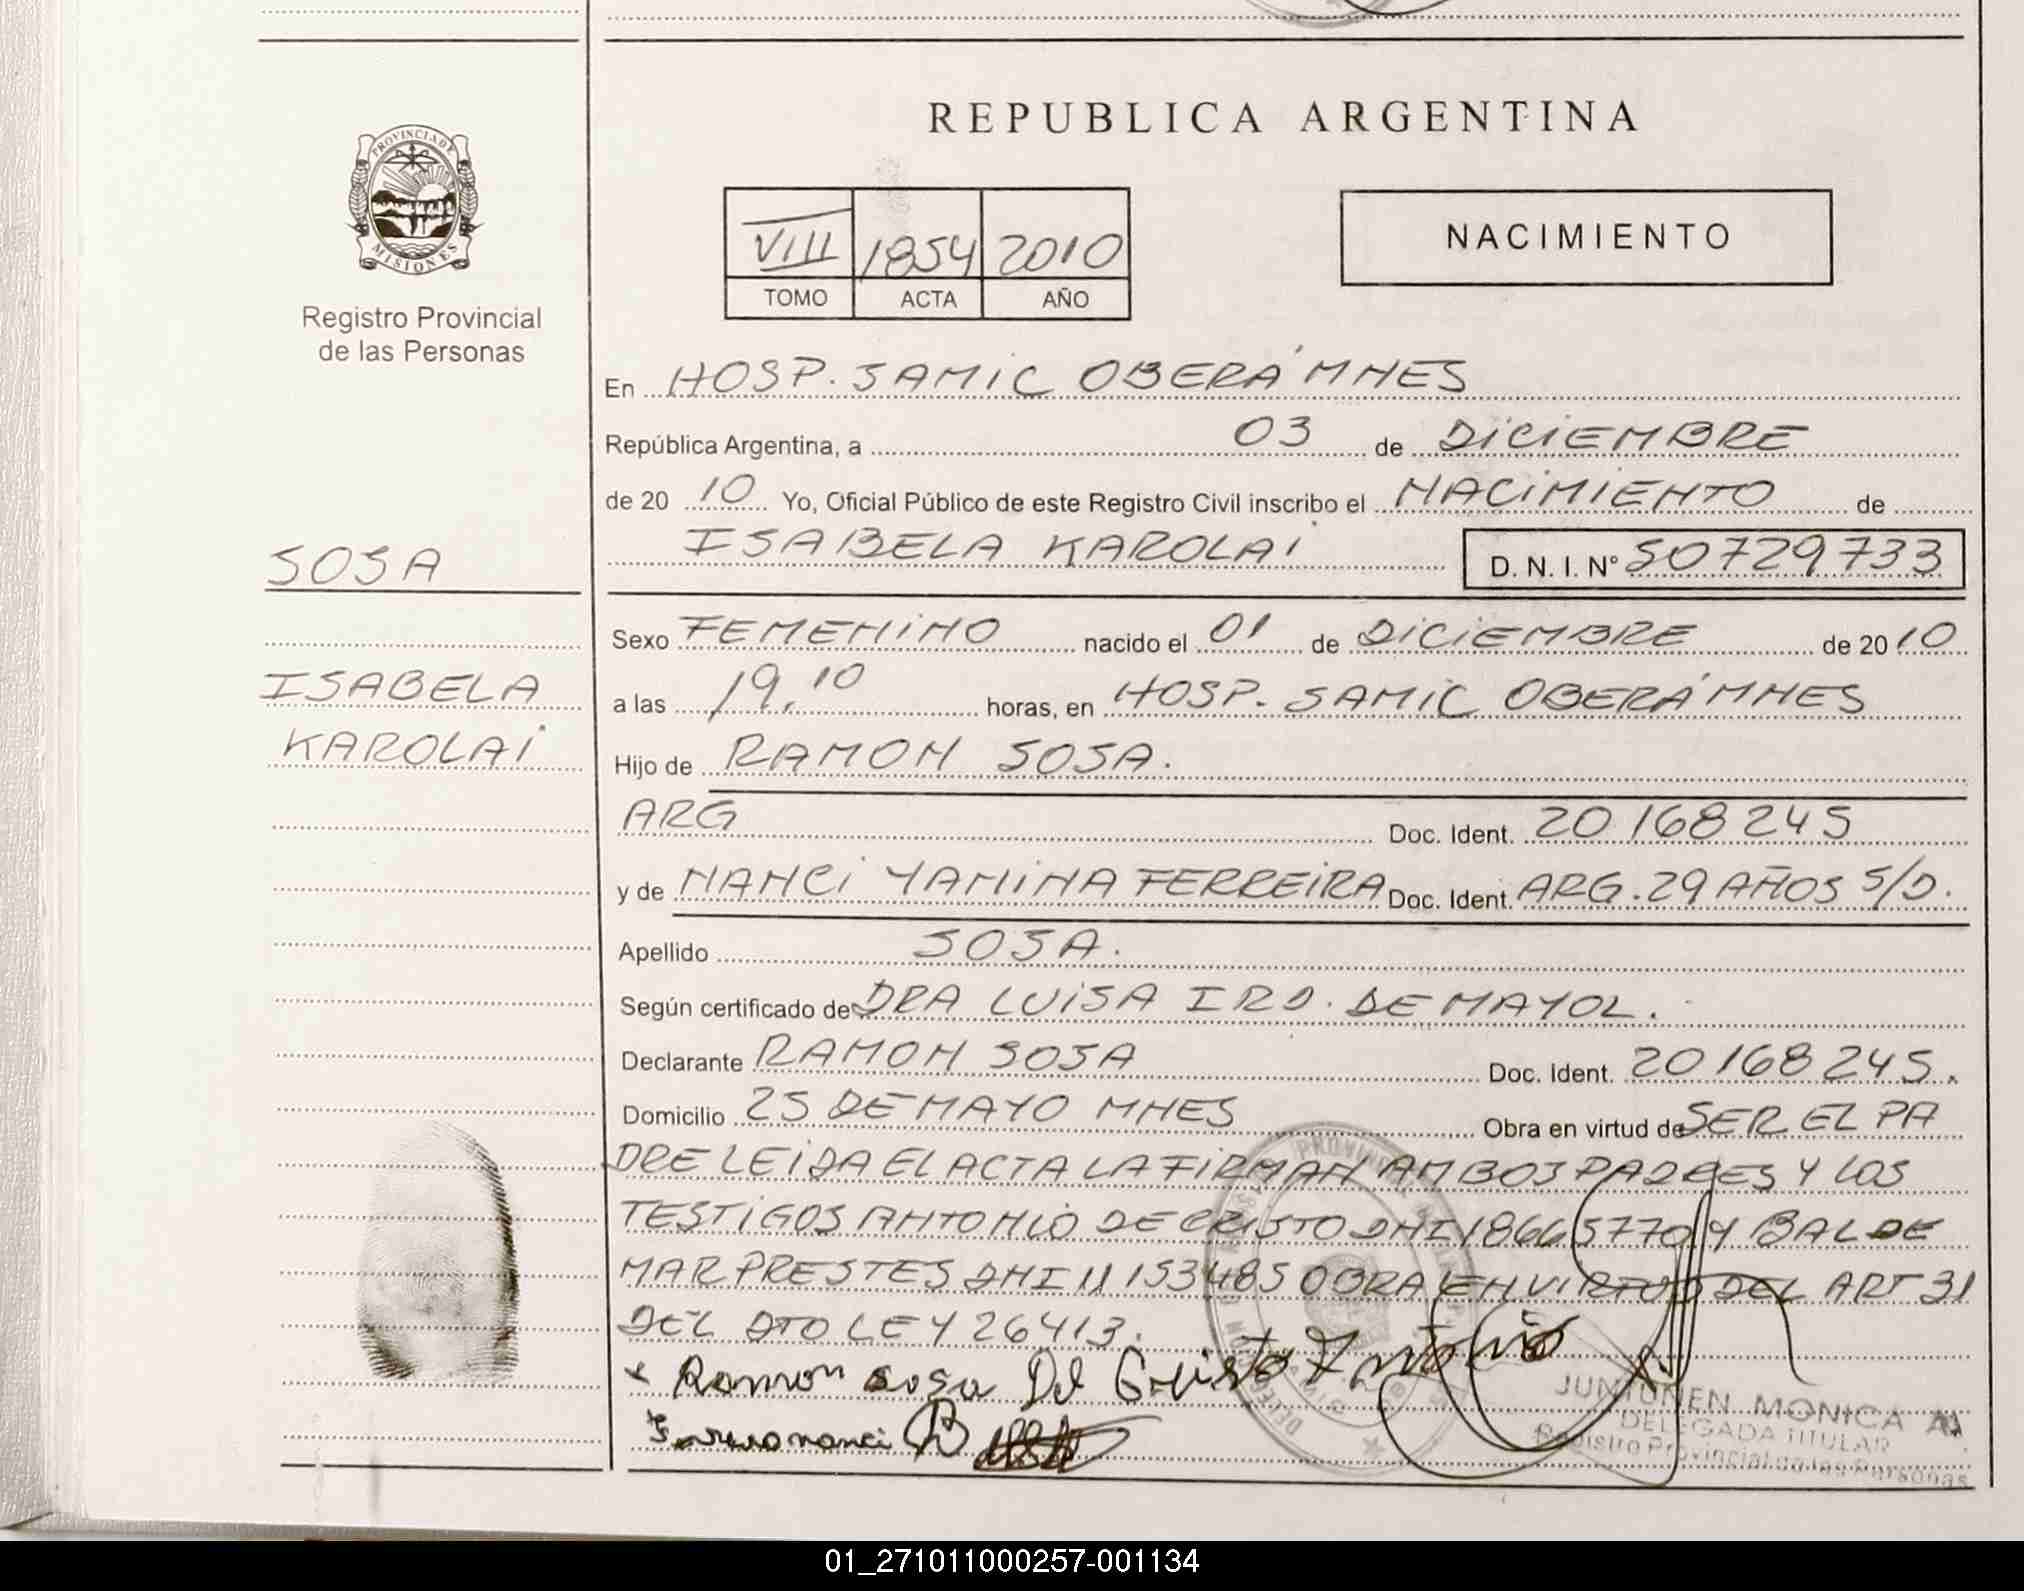 REPUBLICA ARGENTINA
PROVINCIA DE MISIONES
Registro Provincial
de las Personas
VIII 1854 2010
TOMO ACTA AÑO
NACIMIENTO
En HOSP. SAMIC OBERÁ MNES
República Argentina, a 03 de DICIEMBRE
de 20 10 Yo, Oficial Público de este Registro Civil inscribo el NACIMIENTO de
ISABELA KAROLAI D. N. I. N° 50729733
SOSA
Sexo FEMENINO nacido el 01 de DICIEMBRE de 20 10
ISABELA
a las 19,10 horas, en HOSP. SAMIC OBERÁ MNES
KAROLAI
Hijo de RAMON SOSA.
ARG Doc. Ident. 20 168 245
y de NANCI YAMINA FERREIRA Doc. Ident. ARG. 29 AÑOS S/D.
Apellido SOSA.
Según certificado de DRA LUISA IRD. DE MAYOL.
Declarante RAMON SOSA Doc. Ident. 20 168 245.
Domicilio 25 DE MAYO MNES Obra en virtud de SER EL PA
DRE LEIDA EL ACTA LA FIRMAN AMBOS PADRES Y LOS
TESTIGOS ANTONIO DE CRISTO DNI 18665770 Y BALDE
MAR PRESTES DNI 11 153485 OBRA EN VIRTUD DEL ART 31
DEL DTO LEY 26413.
x Ramon sosa Del Cristo Antonio
nanci
JUNTUNEN MONICA A.
DELEGADA TITULAR
Registro Provincial de las Personas
01_271011000257-001134